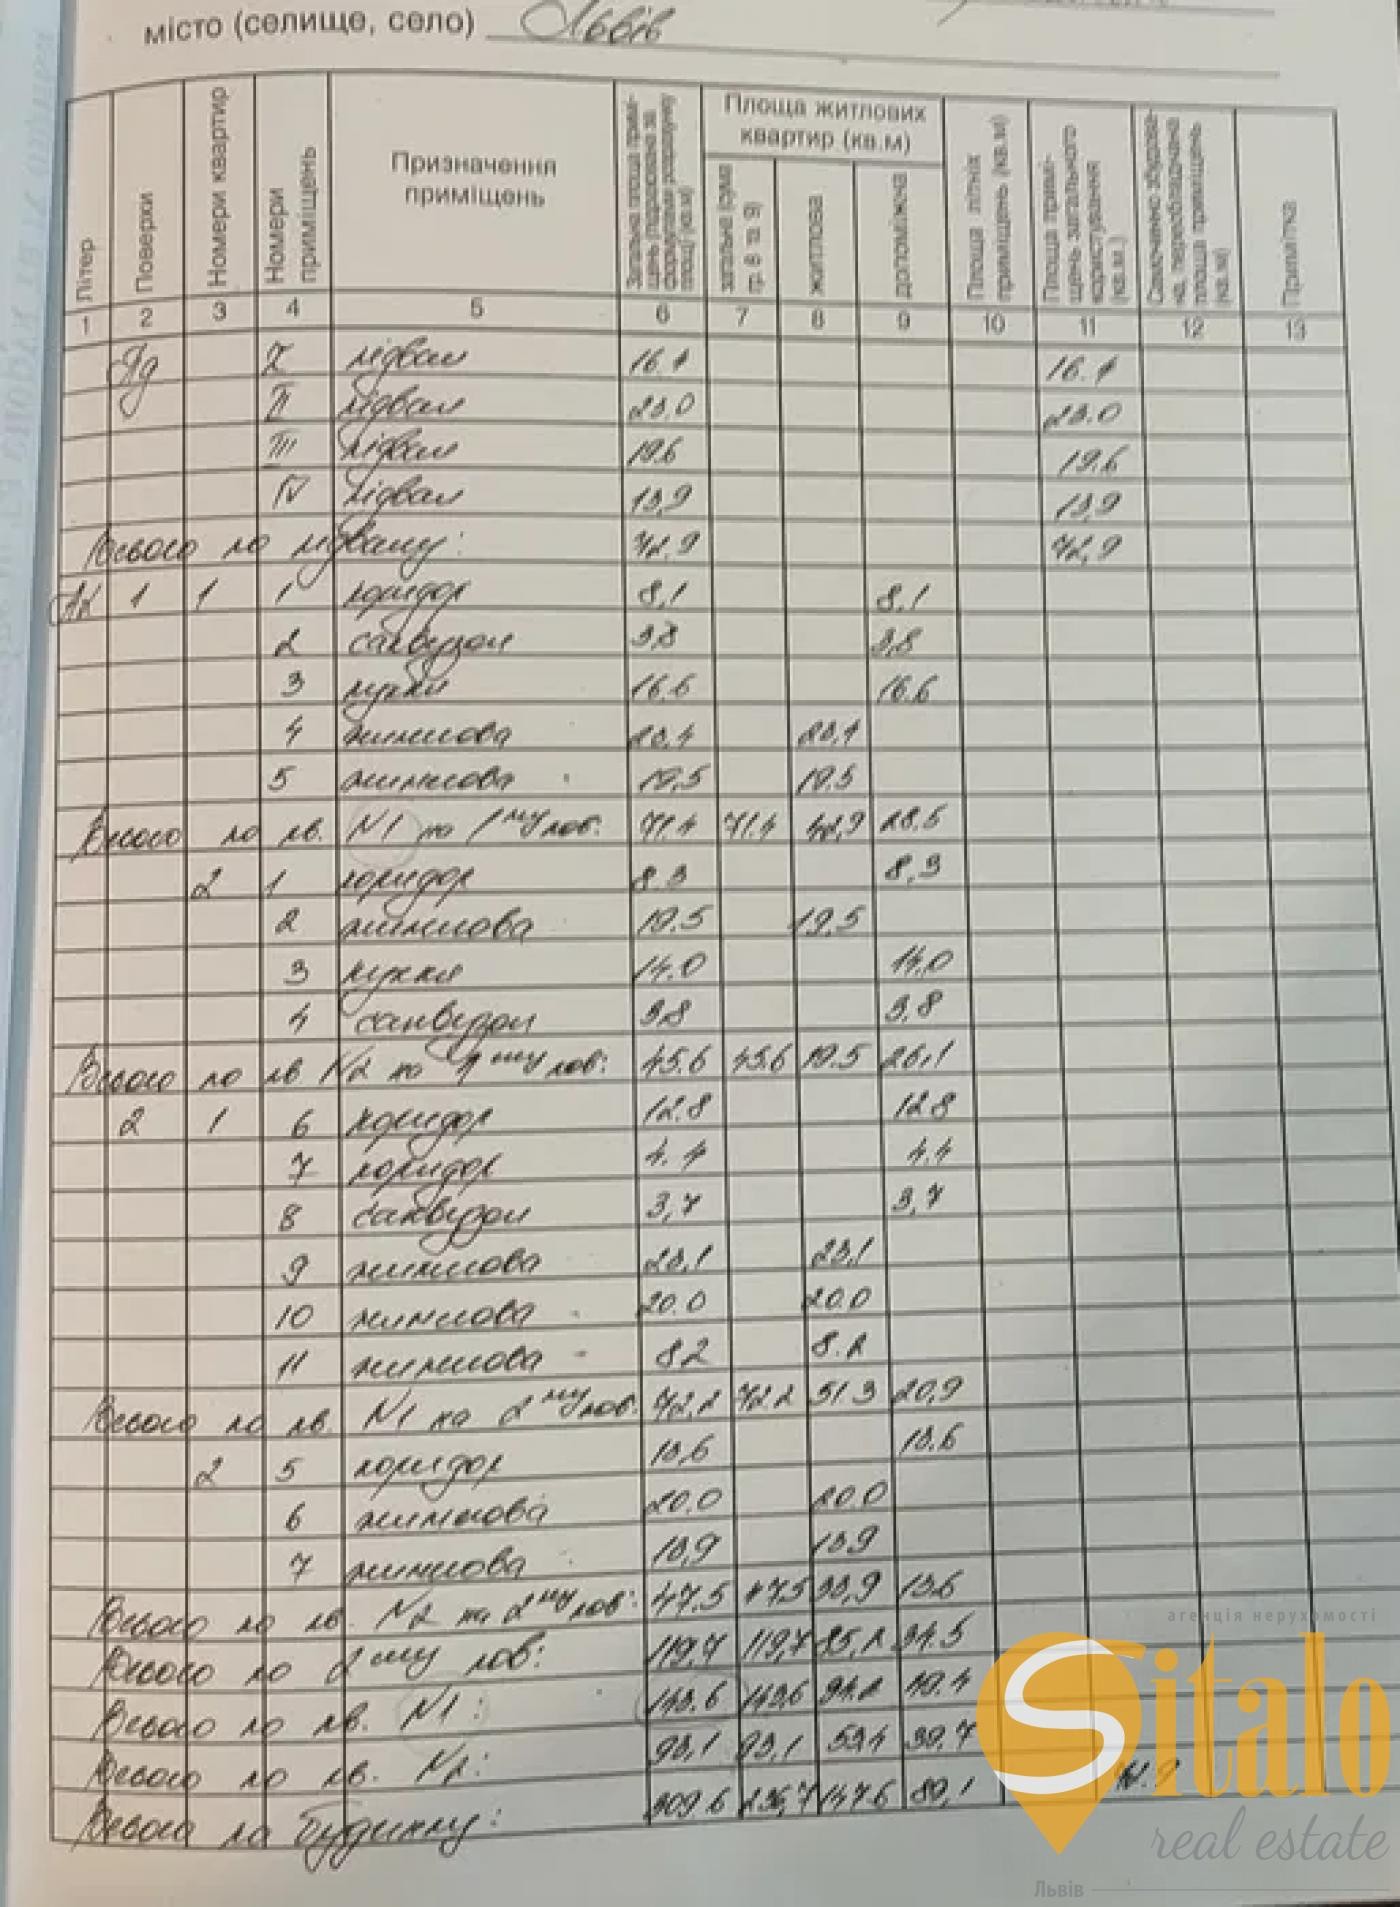 місто (селище, село) Львів
Літер
Поверхи
Номери квартир
Номери приміщень
Призначення приміщень
Загальна площа приміщень (підрахована за формулами розрахунку площ) (кв.м)
Площа житлових квартир (кв.м)
загальна (сума гр. 8 та 9)
житлова
допоміжна
Площа літніх приміщень (кв.м)
Площа приміщень загального користування (кв.м.)
Самочинно збудована, переобладнана площа приміщень (кв.м)
Примітка
1 2 3 4 5 6 7 8 9 10 11 12 13
Пд I підвал 16.1 16.1
II підвал 23.0 23.0
III підвал 19.6 19.6
IV підвал 13,9 13,9
Всього по підвалу: 72,9 72,9
1 1 1 коридор 8,1 8,1
2 санвузол 3,8 3,8
3 кухня 16.6 16.6
4 житлова 23,4 23,4
5 житлова 19,5 19,5
Всього по кв. N1 по 1му пов: 71.4 71.4 42,9 28.5
2 1 коридор 8.3 8,3
2 житлова 19.5 19,5
3 кухня 14.0 14,0
4 санвузол 3,8 3,8
Всього по кв N2 по 1му пов: 45.6 45.6 19.5 26,1
2 1 6 коридор 12.8 12.8
7 коридор 4.4 4.4
8 санвузол 3,7 3,7
9 житлова 23,1 23,1
10 житлова 20.0 20.0
11 житлова 8.2 8.2
Всього по кв. N1 по 2му пов: 72,2 72.2 51.3 20,9
2 5 коридор 13,6 13.6
6 житлова 20.0 20.0
7 житлова 13,9 13,9
Всього по кв. N2 по 2му пов: 47.5 47.5 33,9 13.6
Всього по 2му пов: 119.7 119,7 85,2 34.5
Всього по кв. N1: 143.6 143.6 94.2 49.4
Всього по кв. N2: 93,1 93,1 53,4 39,7
Всього по будинку: 309.6 236,7 147.6 89,1 72.9
агенція нерухомості
Sitalo
real estate
Львів